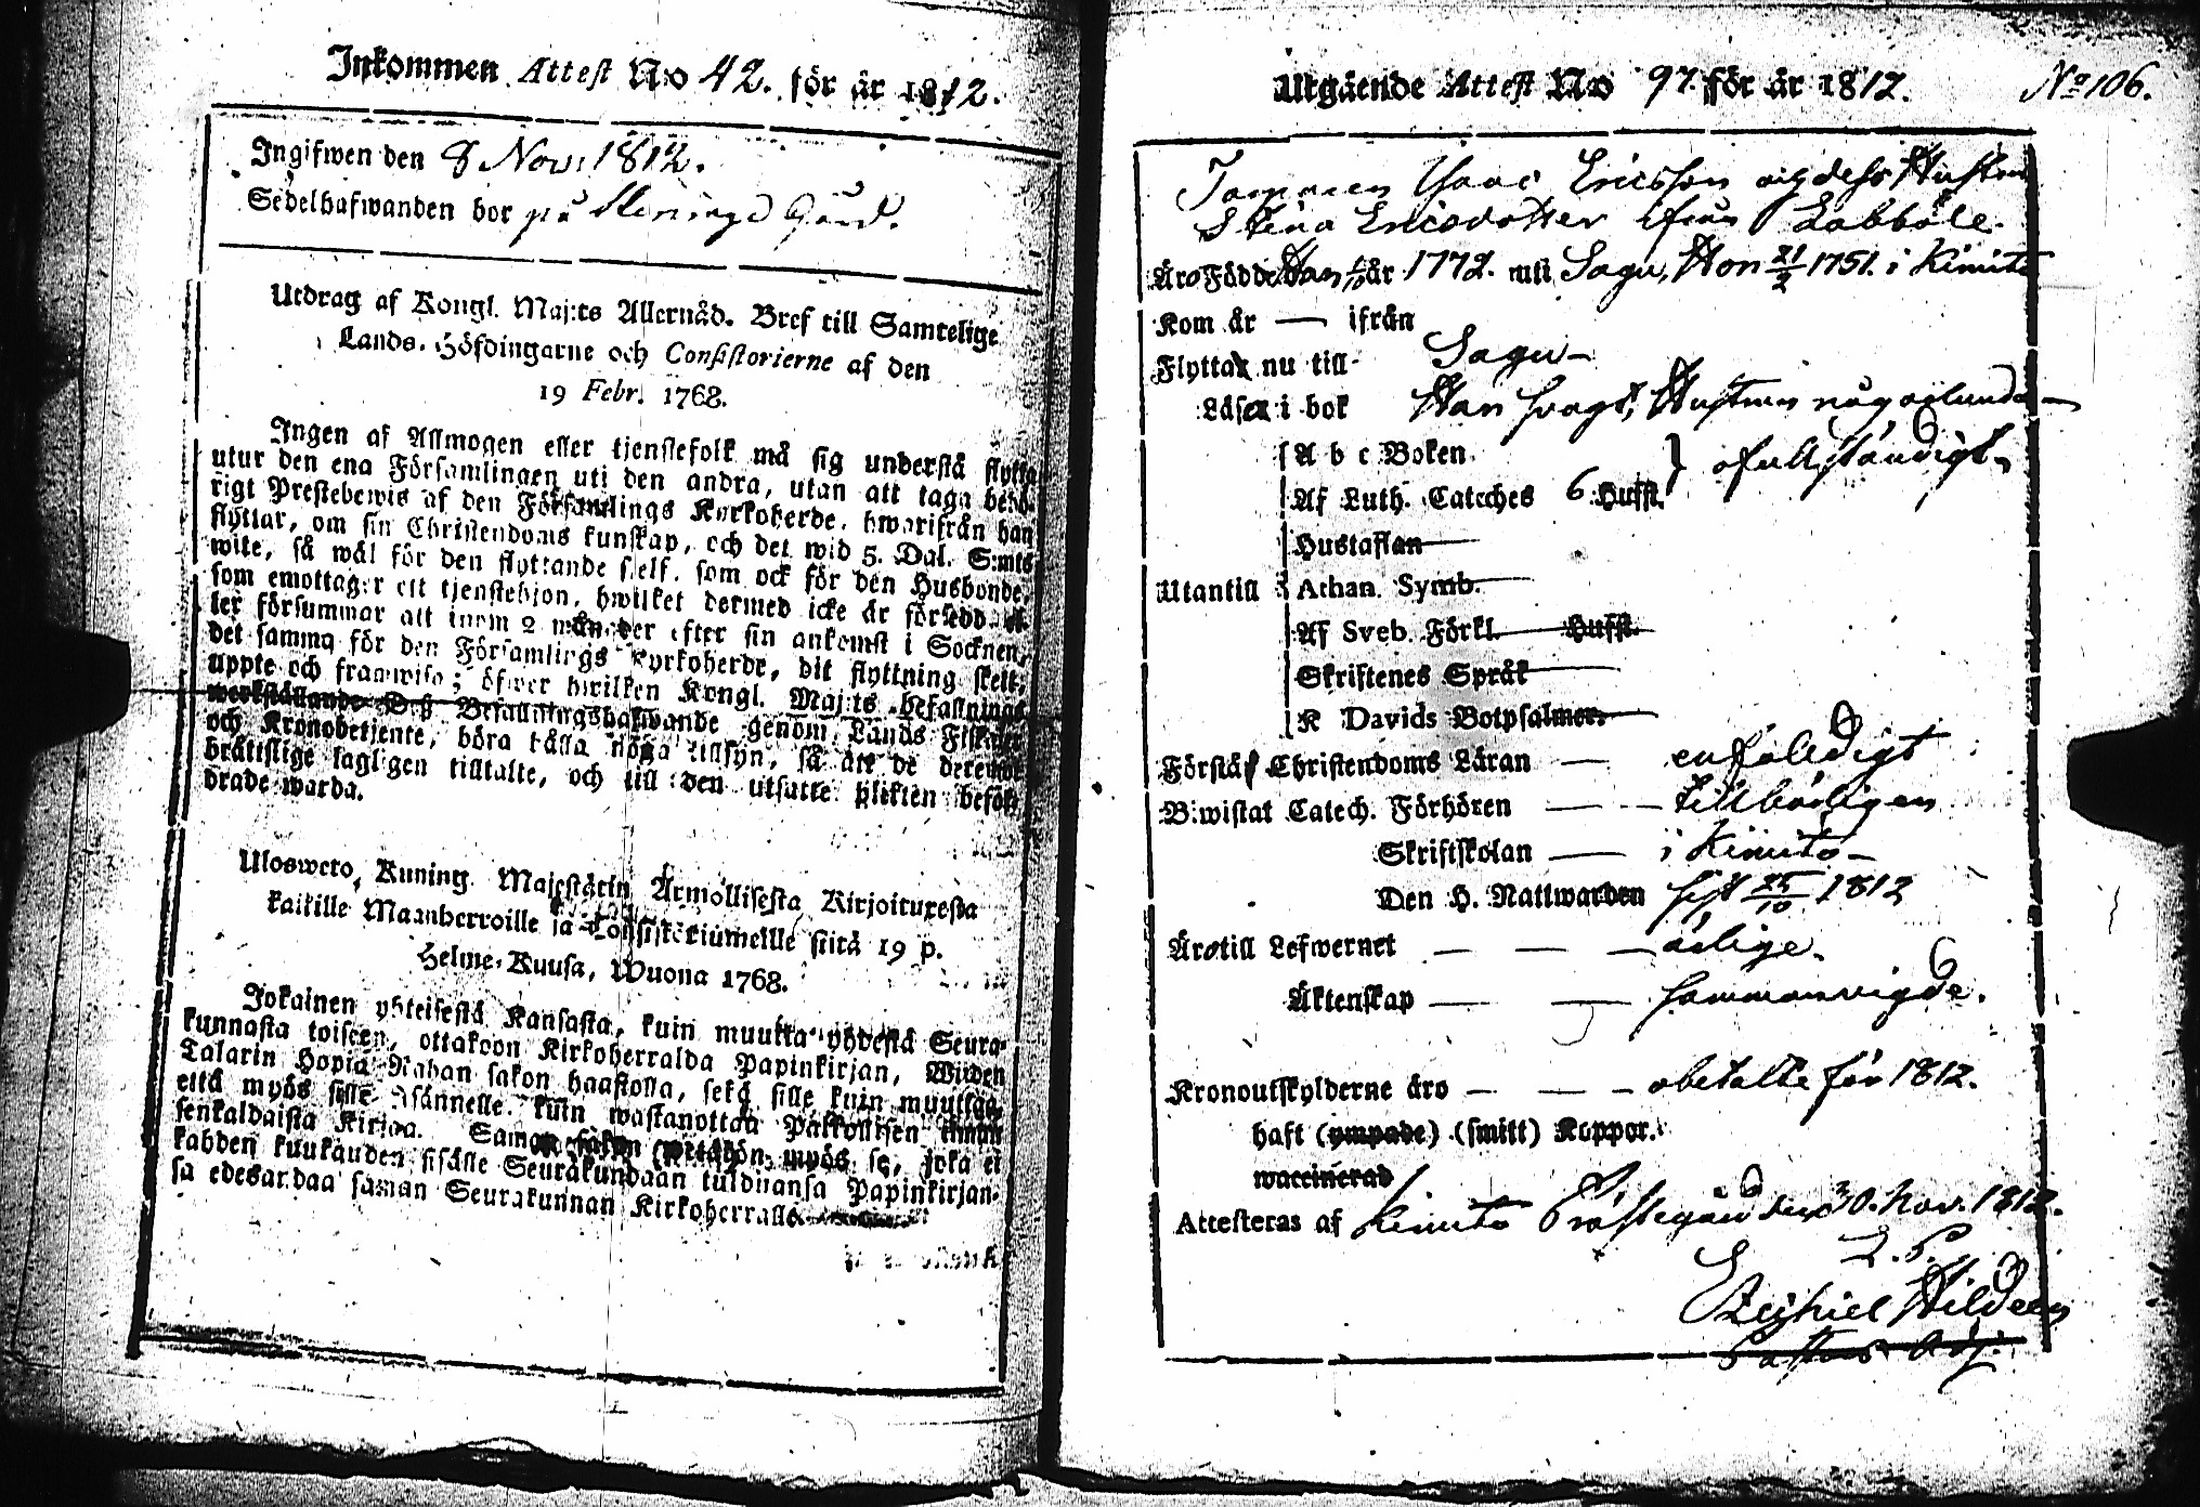 Inkommen Attest No 42. för år 1812.
Ingifwen den 8 Nov: 1812.
Sedelhafwanden bor på Gård.
Utdrag af Kongl. Maj:ts Allernåd. Bref till Samtelige
Lands-Höfdingarne och Consistorierne af den
19 Febr. 1768.
Ingen af Allmogen eller tjenstefolk må sig understå flytta
utur den ena Församlingen uti den andra, utan att taga behö-
rigt Prestebewis af den Församlings Kyrkoherde, hwarifrån han
flyttar, om sin Christendoms kunskap, och det wid 5. Dal. S:mts
wite, så wäl för den flyttande sjelf, som ock för den Husbonde,
som emottager ett tjenstehjon, hwilket dermed icke är försedd el-
ler försummar att inom 2 månader efter sin ankomst i Socknen,
det samma för den Församlings Kyrkoherde, dit flyttning skett,
uppte och framwisa; öfwer hwilken Kongl. Maj:ts befallnings
werkställande Befallningshafwande genom Lands Fiskaler
och Kronobetjente, böra hålla noga tillsyn, så att de deremot
bråttslige lagligen tilltalte, och till den utsatte plikten befor-
drade warda.
Ulosweto, Kuning. Majestätin Armollisesta Kirjoituxesta
kaikille Maanherroille ja Consistoriumeille siitä 19 p.
Helme-Kuusa, Wuona 1768.
Jokainen yhteisestä Kansasta, kuin muutta yhdestä Seura-
kunnasta toiseen, ottakoon Kirkoherralda Papinkirjan, Wiiden
Talarin Hopia Rahan sakon haastolla, sekä sille kuin muuttaa,
että myös sille Isännelle, kuin wastanottaa Palkollisen ilman
senkaldaista Kirjaa. Saman sakon wetäkön myös se, joka ei
kahden kuukauden sisälle Seurakundaan tulduansa Papinkirjan-
sa edesandaa saman Seurakunnan Kirkoherralle
Utgående Attest No 97. för år 1812. No 106.
Isaac Ericsson och dess Hustru
Stina Ericsdotter ifrån Labböle.
Äro Födde Han år 1772. uti Sagu, Hon 21/2 1751. i Kimito
Kom år — ifrån
Flyttar nu till Sagu
Läser i bok Han svagt, Hustrun någorlunda
A b c Boken
Af Luth. Cateches 6 Hufst. } ofullständigt
Hustaflan
Utantill Athan. Symb.
Af Sveb. Förkl. Hufst.
Skriftenes Språk
K Davids Botpsalmer.
Förstår Christendoms Läran — enfaldigt
Biwistat Catech. Förhören — tillbörligen
Skriftskolan — i Kimito
Den H. Nattwarden sist 25/10 1812
Äro till Lefwernet — ärlige.
Äktenskap — sammanvigde.
Kronoutskylderne äro — obetalte för 1812.
haft (ympade) (smitt) Koppor.
waccinerad
Attesteras af Kimito Prästegård den 30. Nov. 1812.
Ezechiel Hildeen
Pastors Adj.